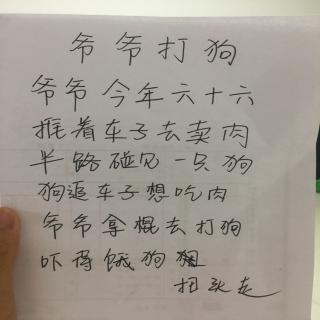 爷爷打狗
爷爷今年六十六
推着车子去卖肉
半路碰见一只狗
狗追车子想吃肉
爷爷拿棍去打狗
吓得饿狗
扭头走